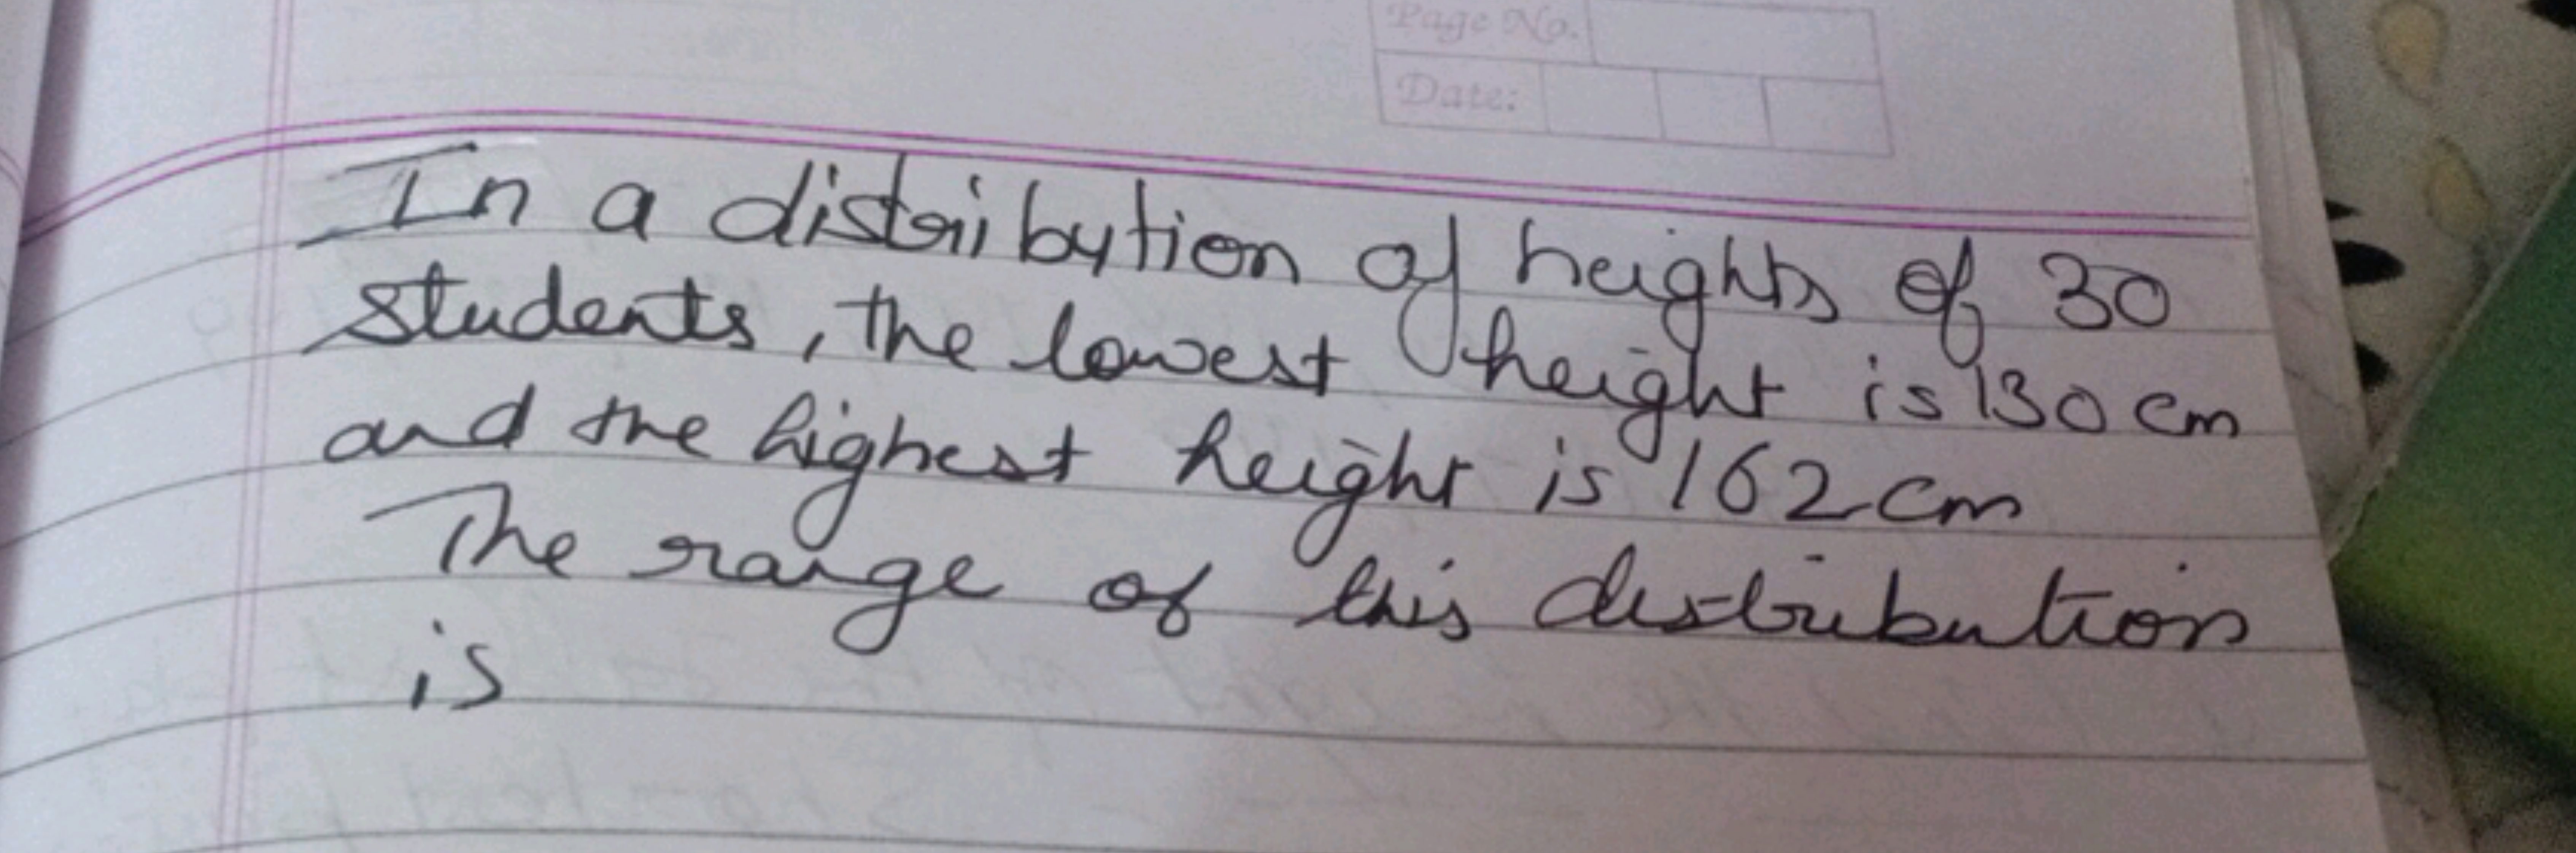 Page No.
Date:
In a distribytion of heights of 30
students, the lowest height is 130 cm
and the highest height is 162 cm
The range of this distribution
is